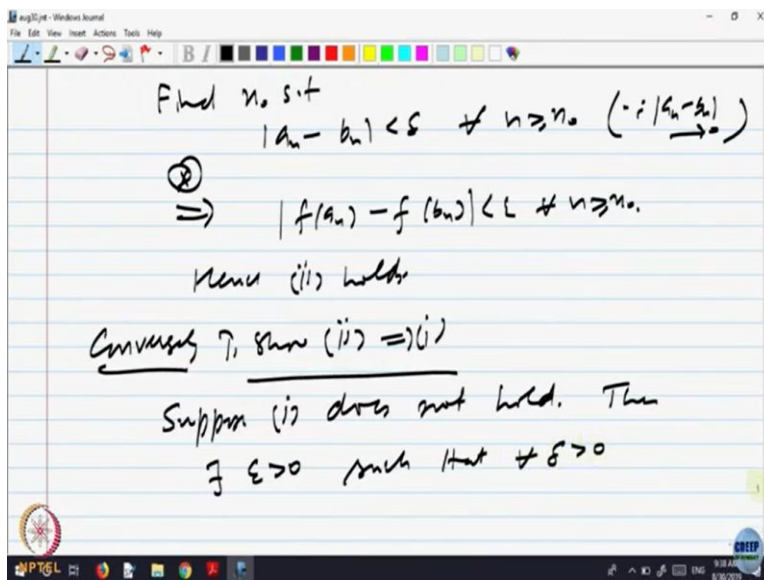 aug30.jnt - Windows Journal
File Edit View Insert Actions Tools Help
B I
Find n₀ s.t
|aₙ - bₙ| < δ ∀ n ≥ n₀ (∵ |aₙ - bₙ| → 0)
(*)
⇒ |f(aₙ) - f(bₙ)| < ε ∀ n ≥ n₀.
Hence (ii) holds.
Conversely To show (ii) ⇒ (i)
Suppose (i) does not hold. Then
∃ ε > 0 such that ∀ δ > 0
1
CDEEP
NPTEL
ENG
9:38 AM
8/30/2019